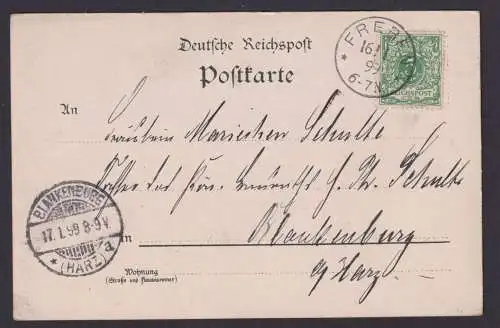 Deutsche Reichspost
Postkarte
FRE
16.1
99
6-7N
REICHSPOST
An
Fräulein Mariechen Schulte
Tochter des Hrn. H. Schulte
BLANKENBURG
17.1.99 8-9V.
* (HARZ) a
in Blankenburg
a/Harz.
Wohnung
(Straße und Hausnummer)